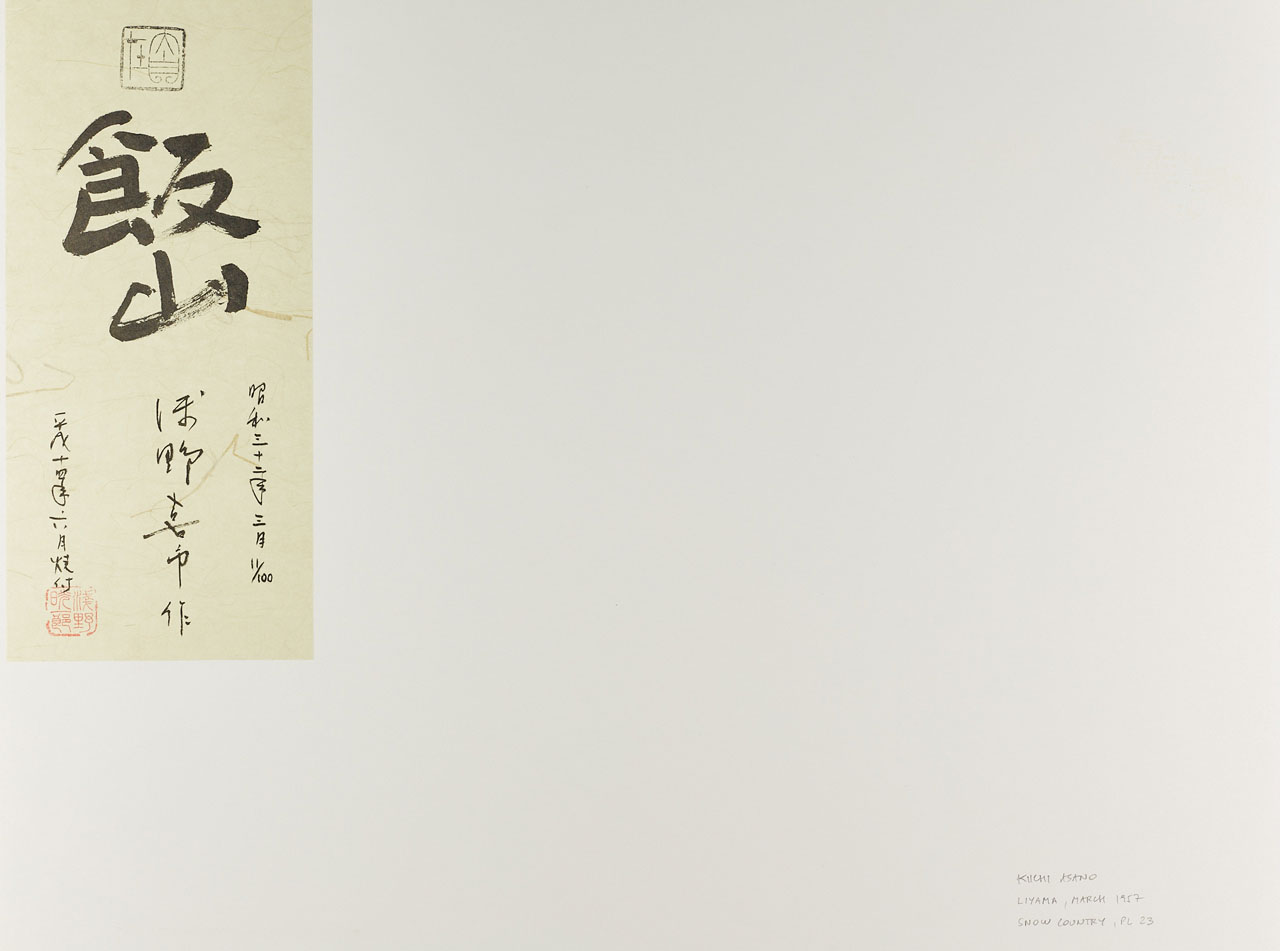 飯山
昭和三十二年三月 11/100
浅野喜市作
平成十四年六月焼付
浅野
KIICHI ASANO
LIYAMA, MARCH 1957
SNOW COUNTRY, PL 23